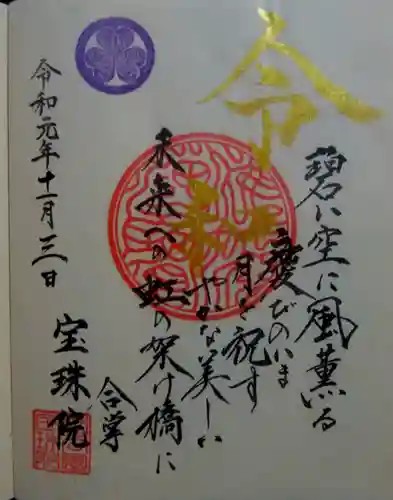 令和
碧い空に風薫る
慶びのいま
月を祝す
やかな美しい
未来への虹の架け橋に
令和元年十一月三日
宝珠院
合掌